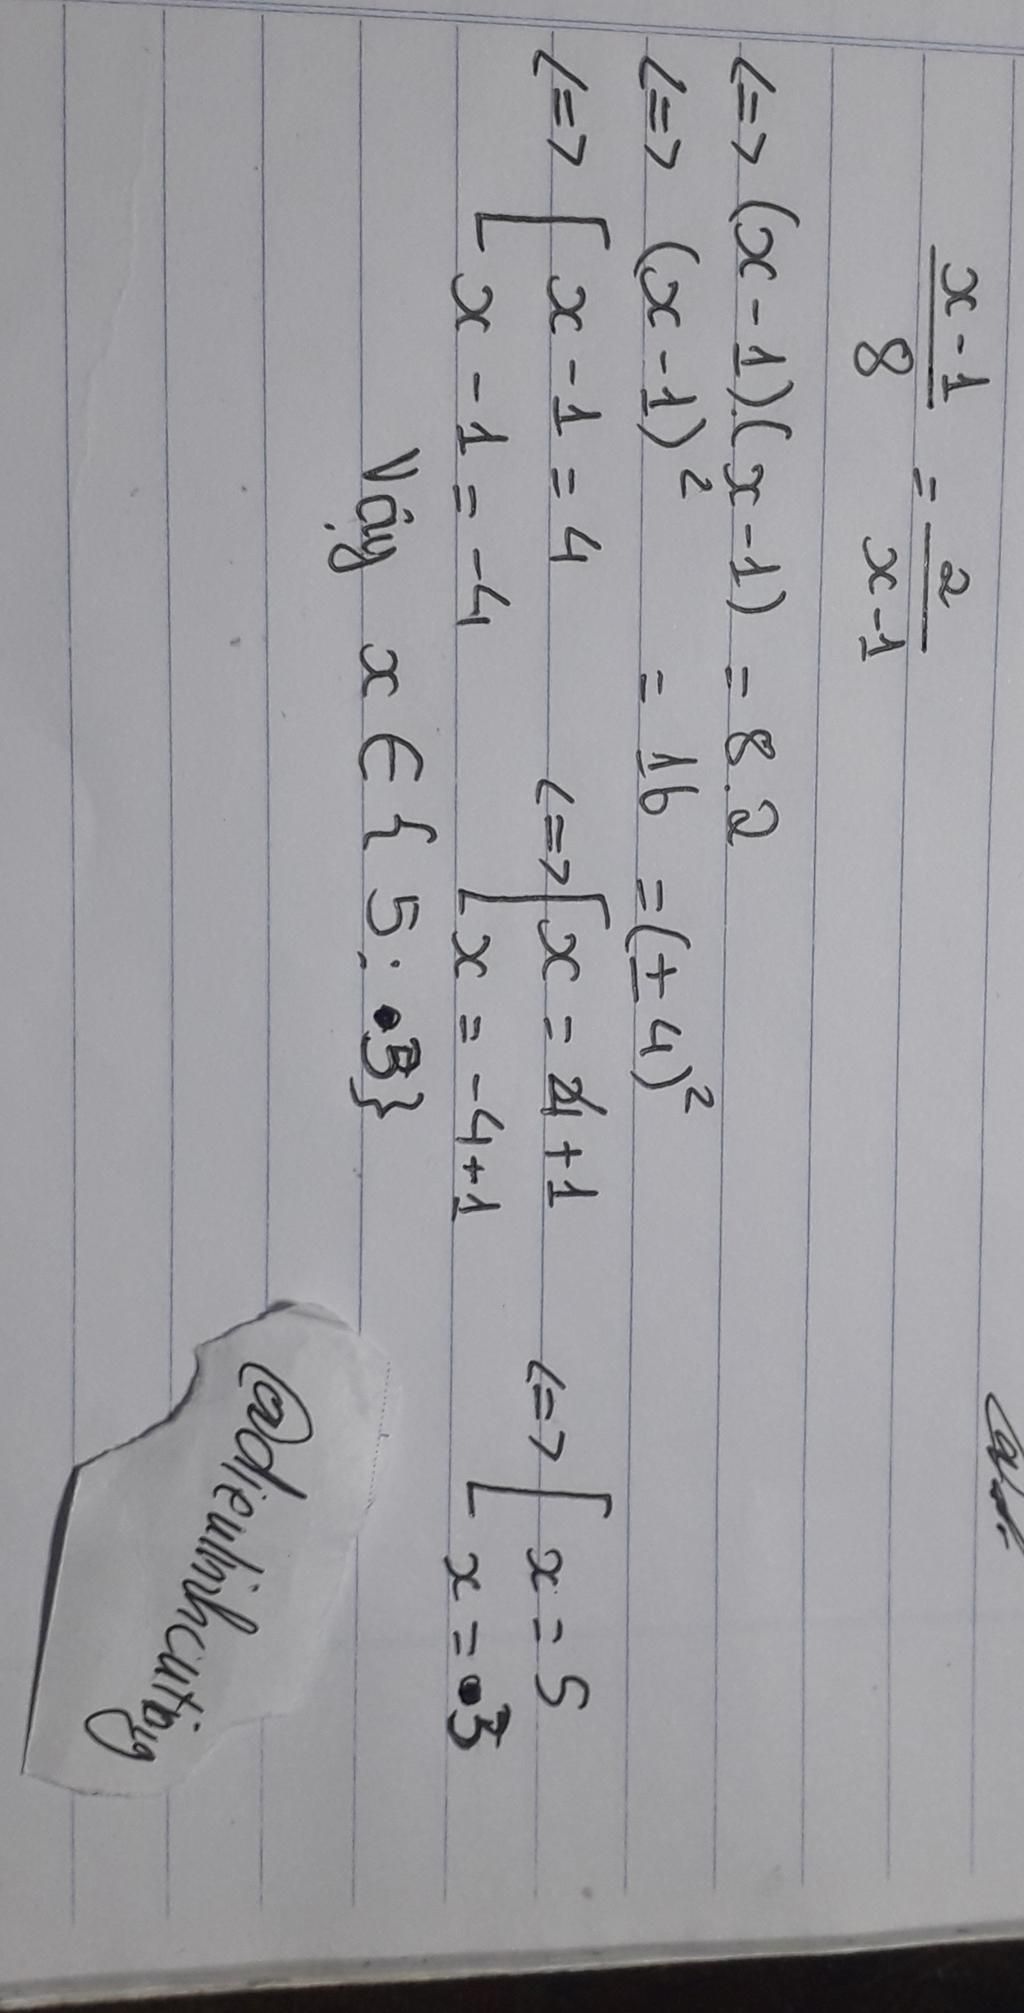 x-1/8 = 2/x-1
<=> (x-1).(x-1) = 8.2
<=> (x-1)² = 16 = (±4)²
<=> [ x-1 = 4 <=> [ x = 4+1 <=> [ x = 5
[ x-1 = -4 [ x = -4+1 [ x = 3
Vậy x ∈ { 5; 3}
@dieulinhcuti